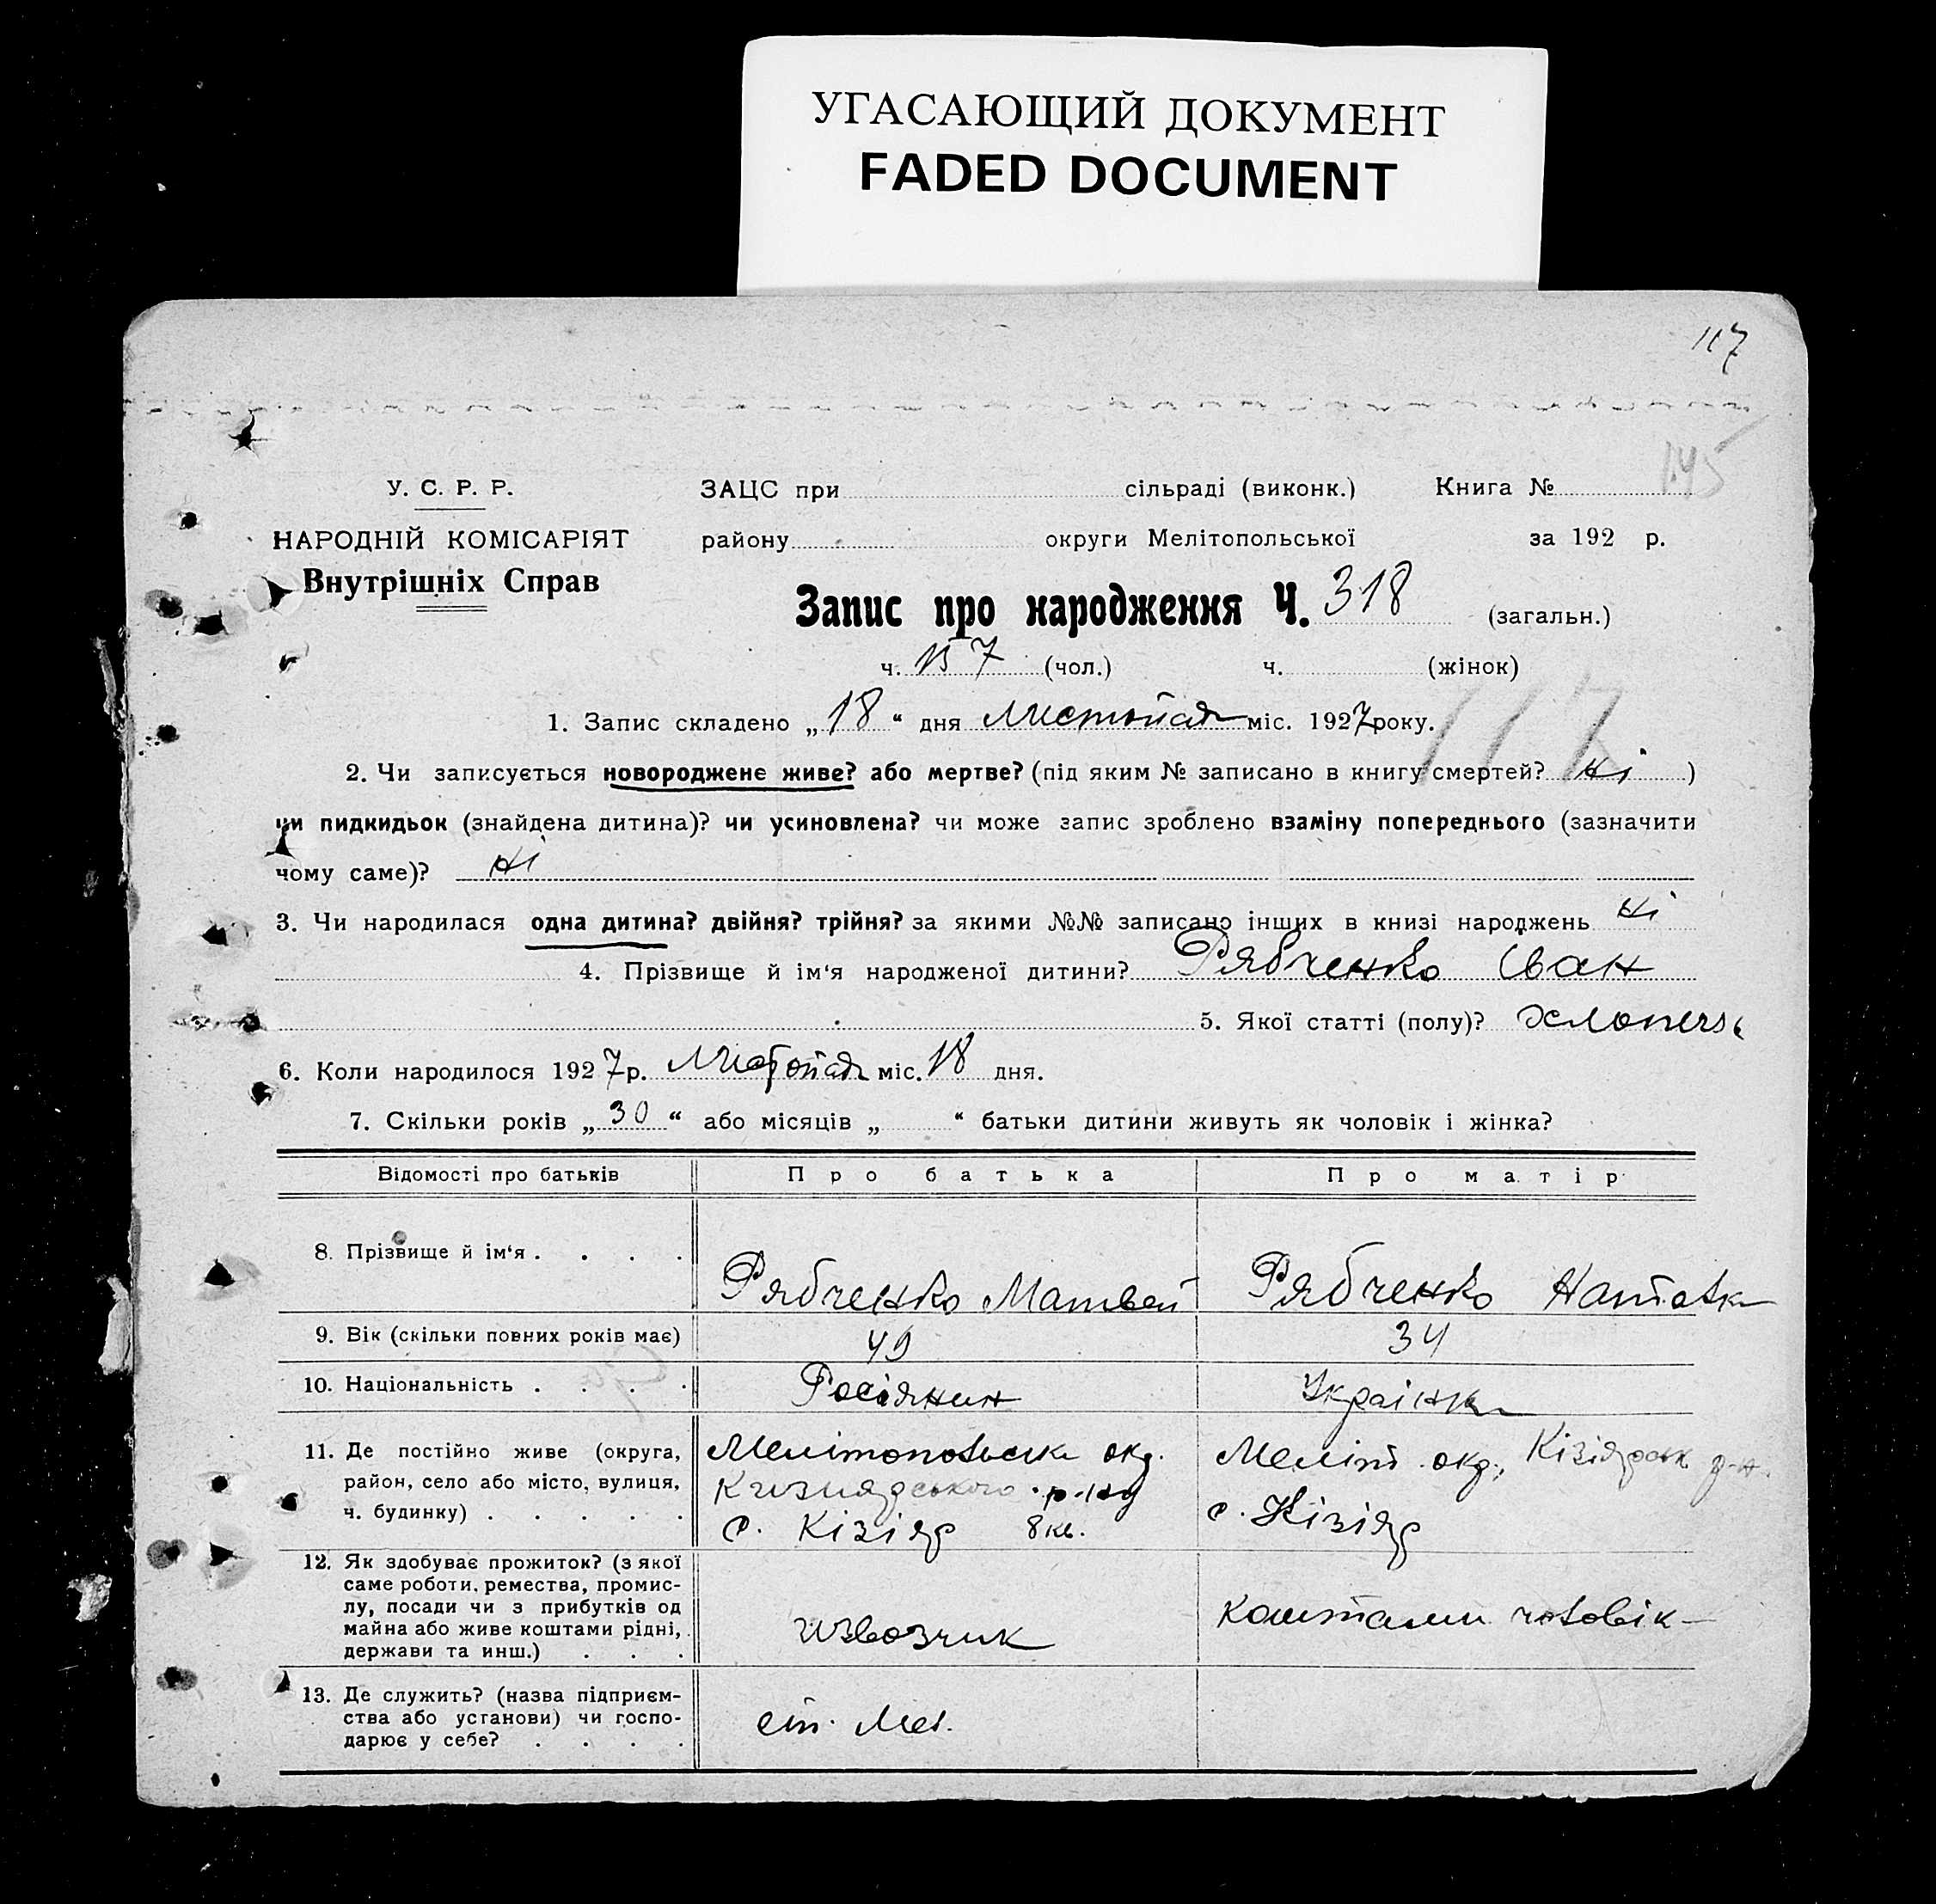 УГАСАЮЩИЙ ДОКУМЕНТ
FADED DOCUMENT
117
145
У. С. Р. Р.
ЗАЦС при сільраді (виконк.) Книга №
НАРОДНІЙ КОМІСАРІЯТ
району округи Мелітопольської за 192 р.
Внутрішніх Справ
Запис про народження Ч. 318 (загальн.)
ч. 157 (чол.) ч. (жінок)
117
1. Запис складено „18“ дня Листопад міс. 1927 року.
2. Чи записується новороджене живе? або мертве? (під яким № записано в книгу смертей? Ні )
чи пидкидьок (знайдена дитина)? чи усиновлена? чи може запис зроблено взаміну попереднього (зазначити
чому саме)? Ні
3. Чи народилася одна дитина? двійня? трійня? за якими №№ записано інших в книзі народжень Ні
4. Прізвище й ім‘я народженої дитини? Рябченко Іван
5. Якої статті (полу)? Хлопець
6. Коли народилося 1927 р. Листопад міс. 18 дня.
7. Скільки років „30“ або місяців „ “ батьки дитини живуть як чоловік і жінка?
Відомості про батьків
Про батька
Про матір
8. Прізвище й ім‘я . . . .
Рябченко Матвей
Рябченко Наталка
9. Вік (скільки повних років має)
49
34
10. Національність . . . .
Росіянин
Українка
11. Де постійно живе (округа,
район, село або місто, вулиця,
ч. будинку) . . . . .
Мелітопольськ окр.
Кизиядського р-ну
с. Кізіяр 8 кв.
Меліт. окр., Кізіярськ р-н.
с. Кізіяр
12. Як здобуває прожиток? (з якої
саме роботи, ремества, промис-
лу, посади чи з прибутків од
майна або живе коштами рідні,
держави та инш.) . . .
извозчик
коштами чоловік
13. Де служить? (назва підприєм-
ства або установи) чи госпо-
дарює у себе? . . . .
ст. Мел.